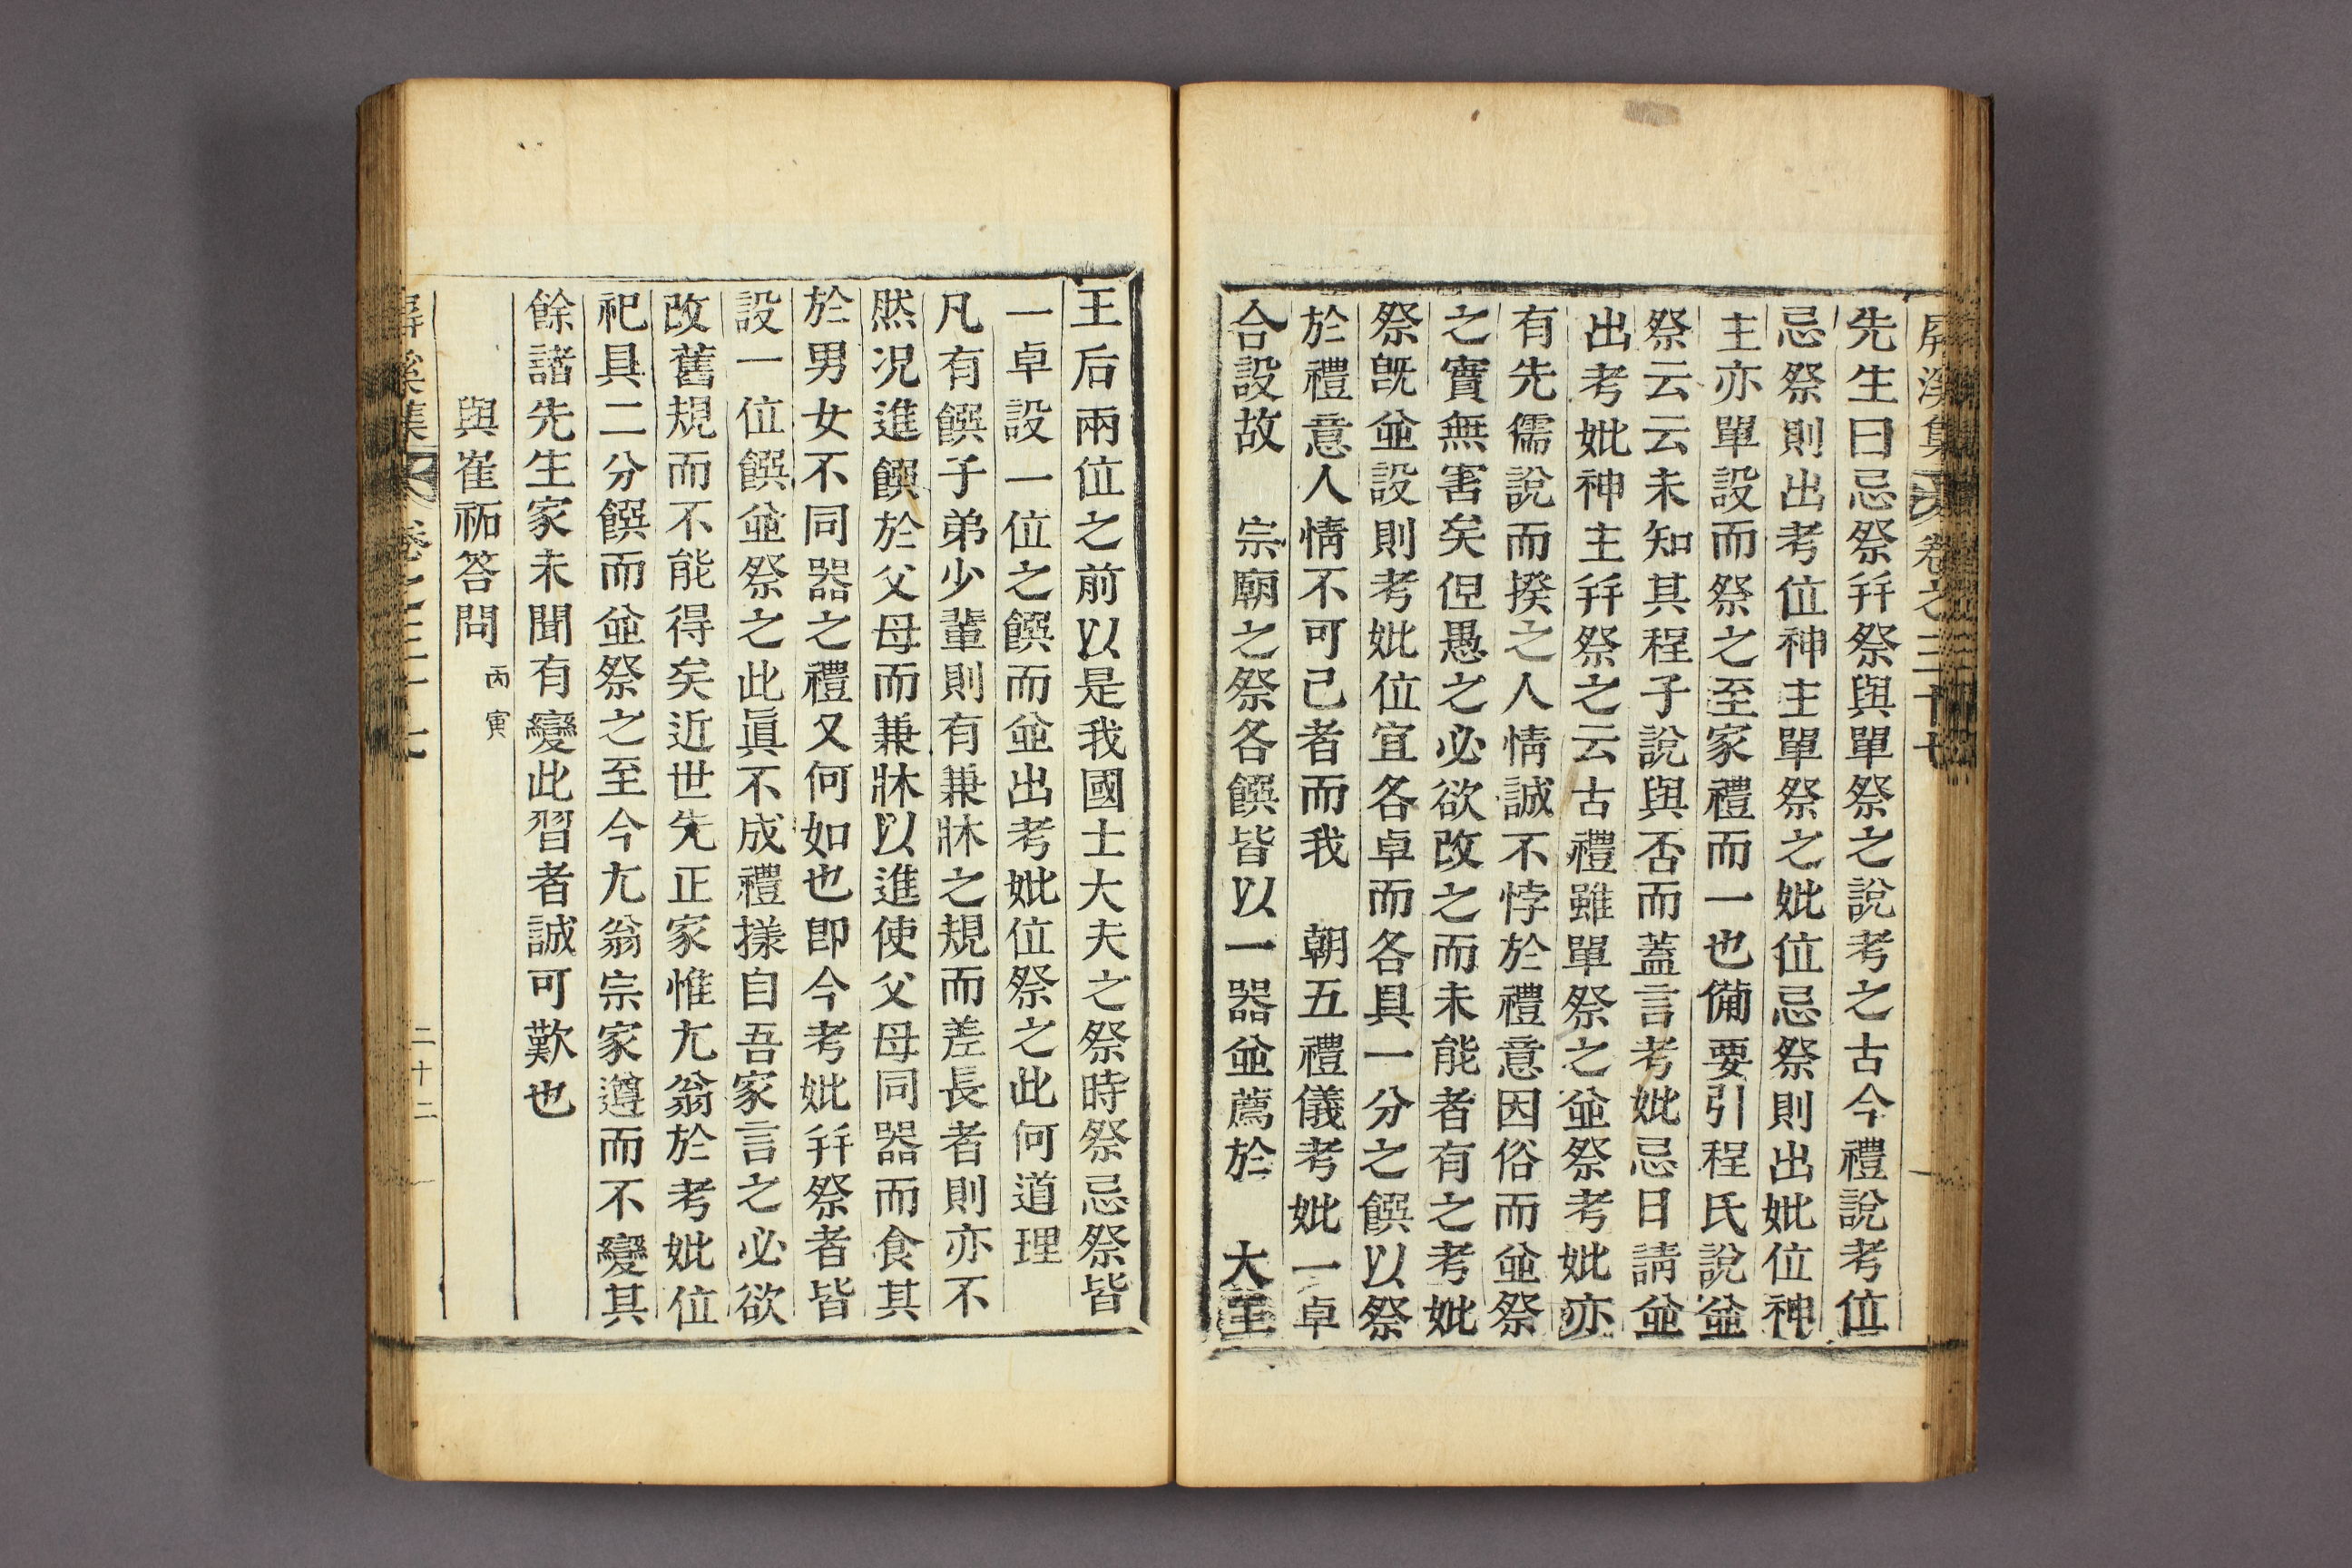 屏溪集 卷之三十七
先生曰忌祭幷祭與單祭之說考之古今禮說考位
忌祭則出考位神主單祭之妣位忌祭則出妣位神
主亦單設而祭之至家禮而一也備要引程氏說並
祭云云未知其程子說與否而蓋言考妣忌日請並
出考妣神主幷祭之云古禮雖單祭之並祭考妣亦
有先儒說而揆之人情誠不悖於禮意因俗而並祭
之實無害矣但愚之必欲改之而未能者有之考妣
祭旣並設則考妣位宜各卓而各具一分之饌以祭
於禮意人情不可已者而我 朝五禮儀考妣一卓
合設故 宗廟之祭各饌皆以一器並薦於 大王
王后兩位之前以是我國士大夫之祭時祭忌祭皆
一卓設一位之饌而並出考妣位祭之此何道理
凡有饌子弟少輩則有兼牀之規而差長者則亦不
然况進饌於父母而兼牀以進使父母同器而食其
於男女不同器之禮又何如也卽今考妣幷祭者皆
設一位饌並祭之此眞不成禮㨾自吾家言之必欲
改舊規而不能得矣近世先正家惟尤翁於考妣位
祀具二分饌而並祭之至今尤翁宗家遵而不變其
餘諸先生家未聞有變此習者誠可歎也
與崔祏答問 丙寅
屏溪集 卷之三十七 二十二